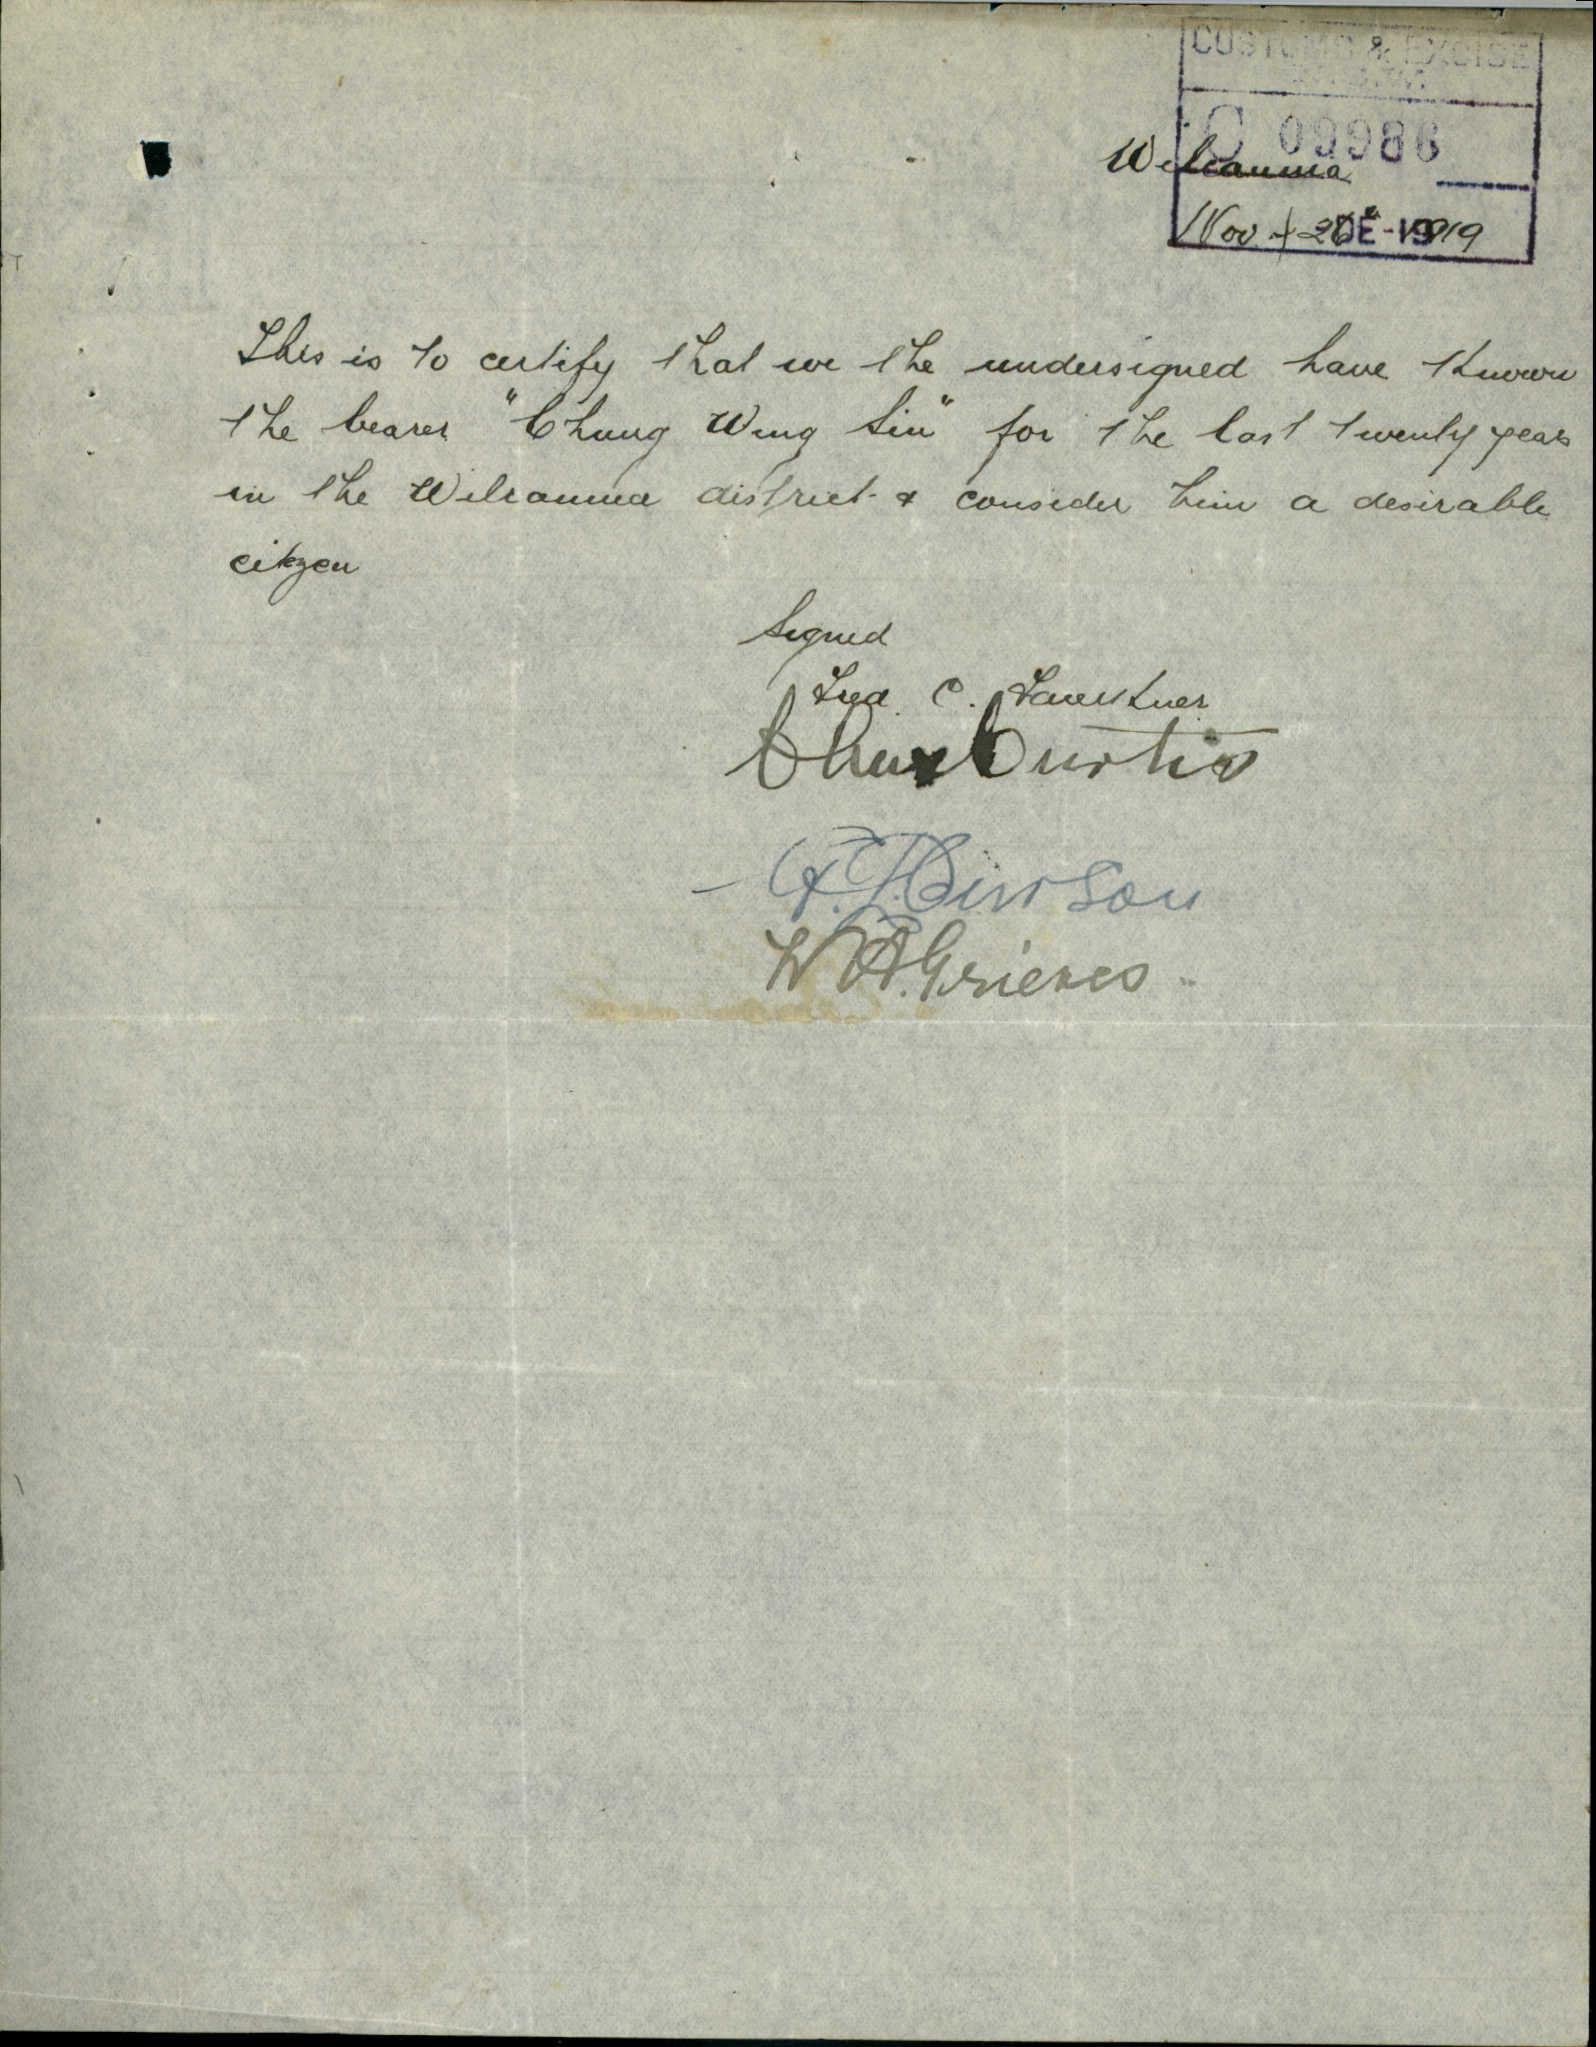 CUSTOMS & EXCISE
C 09986
Wilcannia
Nov 26th 1919
DE - 19
This is to certify that we the undersigned have known
the bearer "Chung Wing Sin" for the last twenty years
in the Wilcannia district & consider him a desirable
citizen
Signed
Fred. C. Faulkner
Chas Curtis
Burson
W A. Grieves